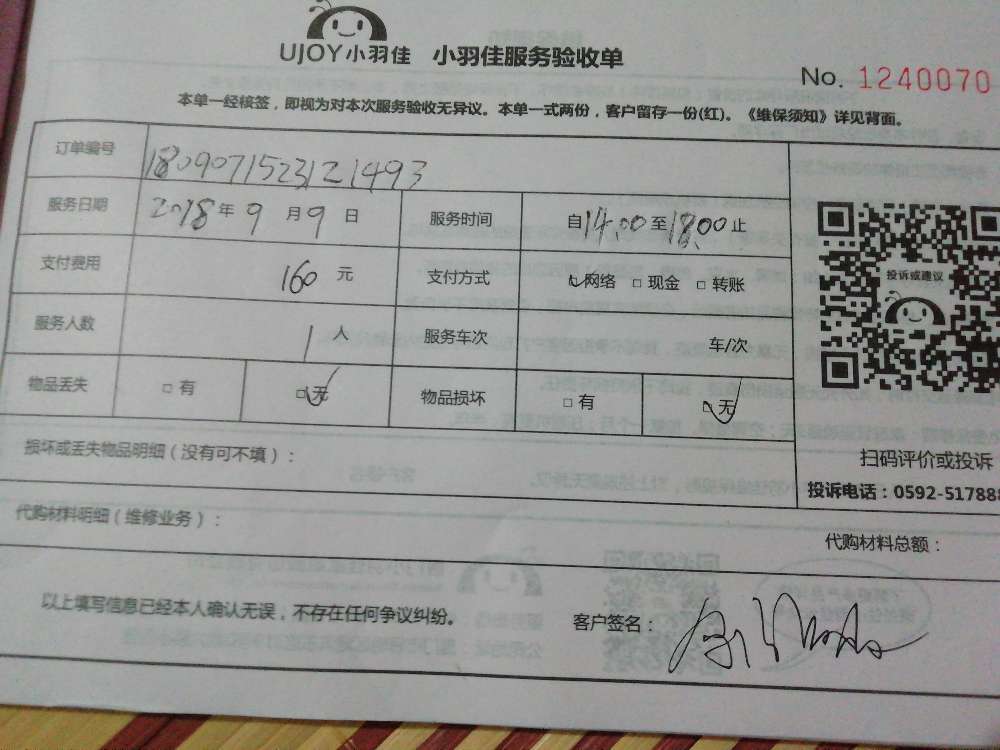 UJOY小羽佳 小羽佳服务验收单
No. 1240070
本单一经核签，即视为对本次服务验收无异议。本单一式两份，客户留存一份(红)。《维保须知》详见背面。
订单编号 180907152312 1493
服务日期 2018年9月9日 服务时间 自14:00至18:00止
投诉或建议
支付费用 160元 支付方式 网络 □ 现金 □ 转账
服务人数 1人 服务车次 车/次
物品丢失 □ 有 □ 无 物品损坏 □ 有 □ 无
损坏或丢失物品明细（没有可不填）：
扫码评价或投诉
投诉电话：0592-517888
代购材料明细（维修业务）：
代购材料总额：
以上填写信息已经本人确认无误，不存在任何争议纠纷。
客户签名：